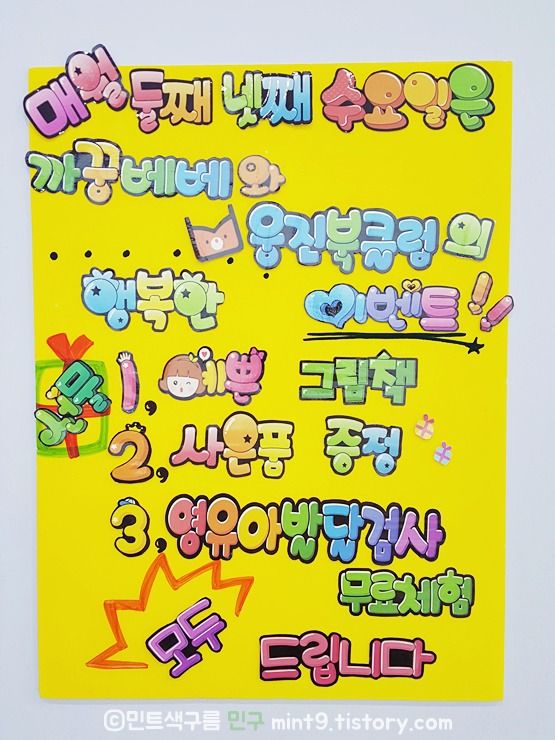 매월 둘째 넷째 수요일은
까꿍베베와
웅진북클럽의
행복한 이벤트!!
1, 예쁜 그림책
2, 사은품 증정
3, 영유아발달검사
무료체험
모두 드립니다
©민트색구름 민구 mint9.tistory.com